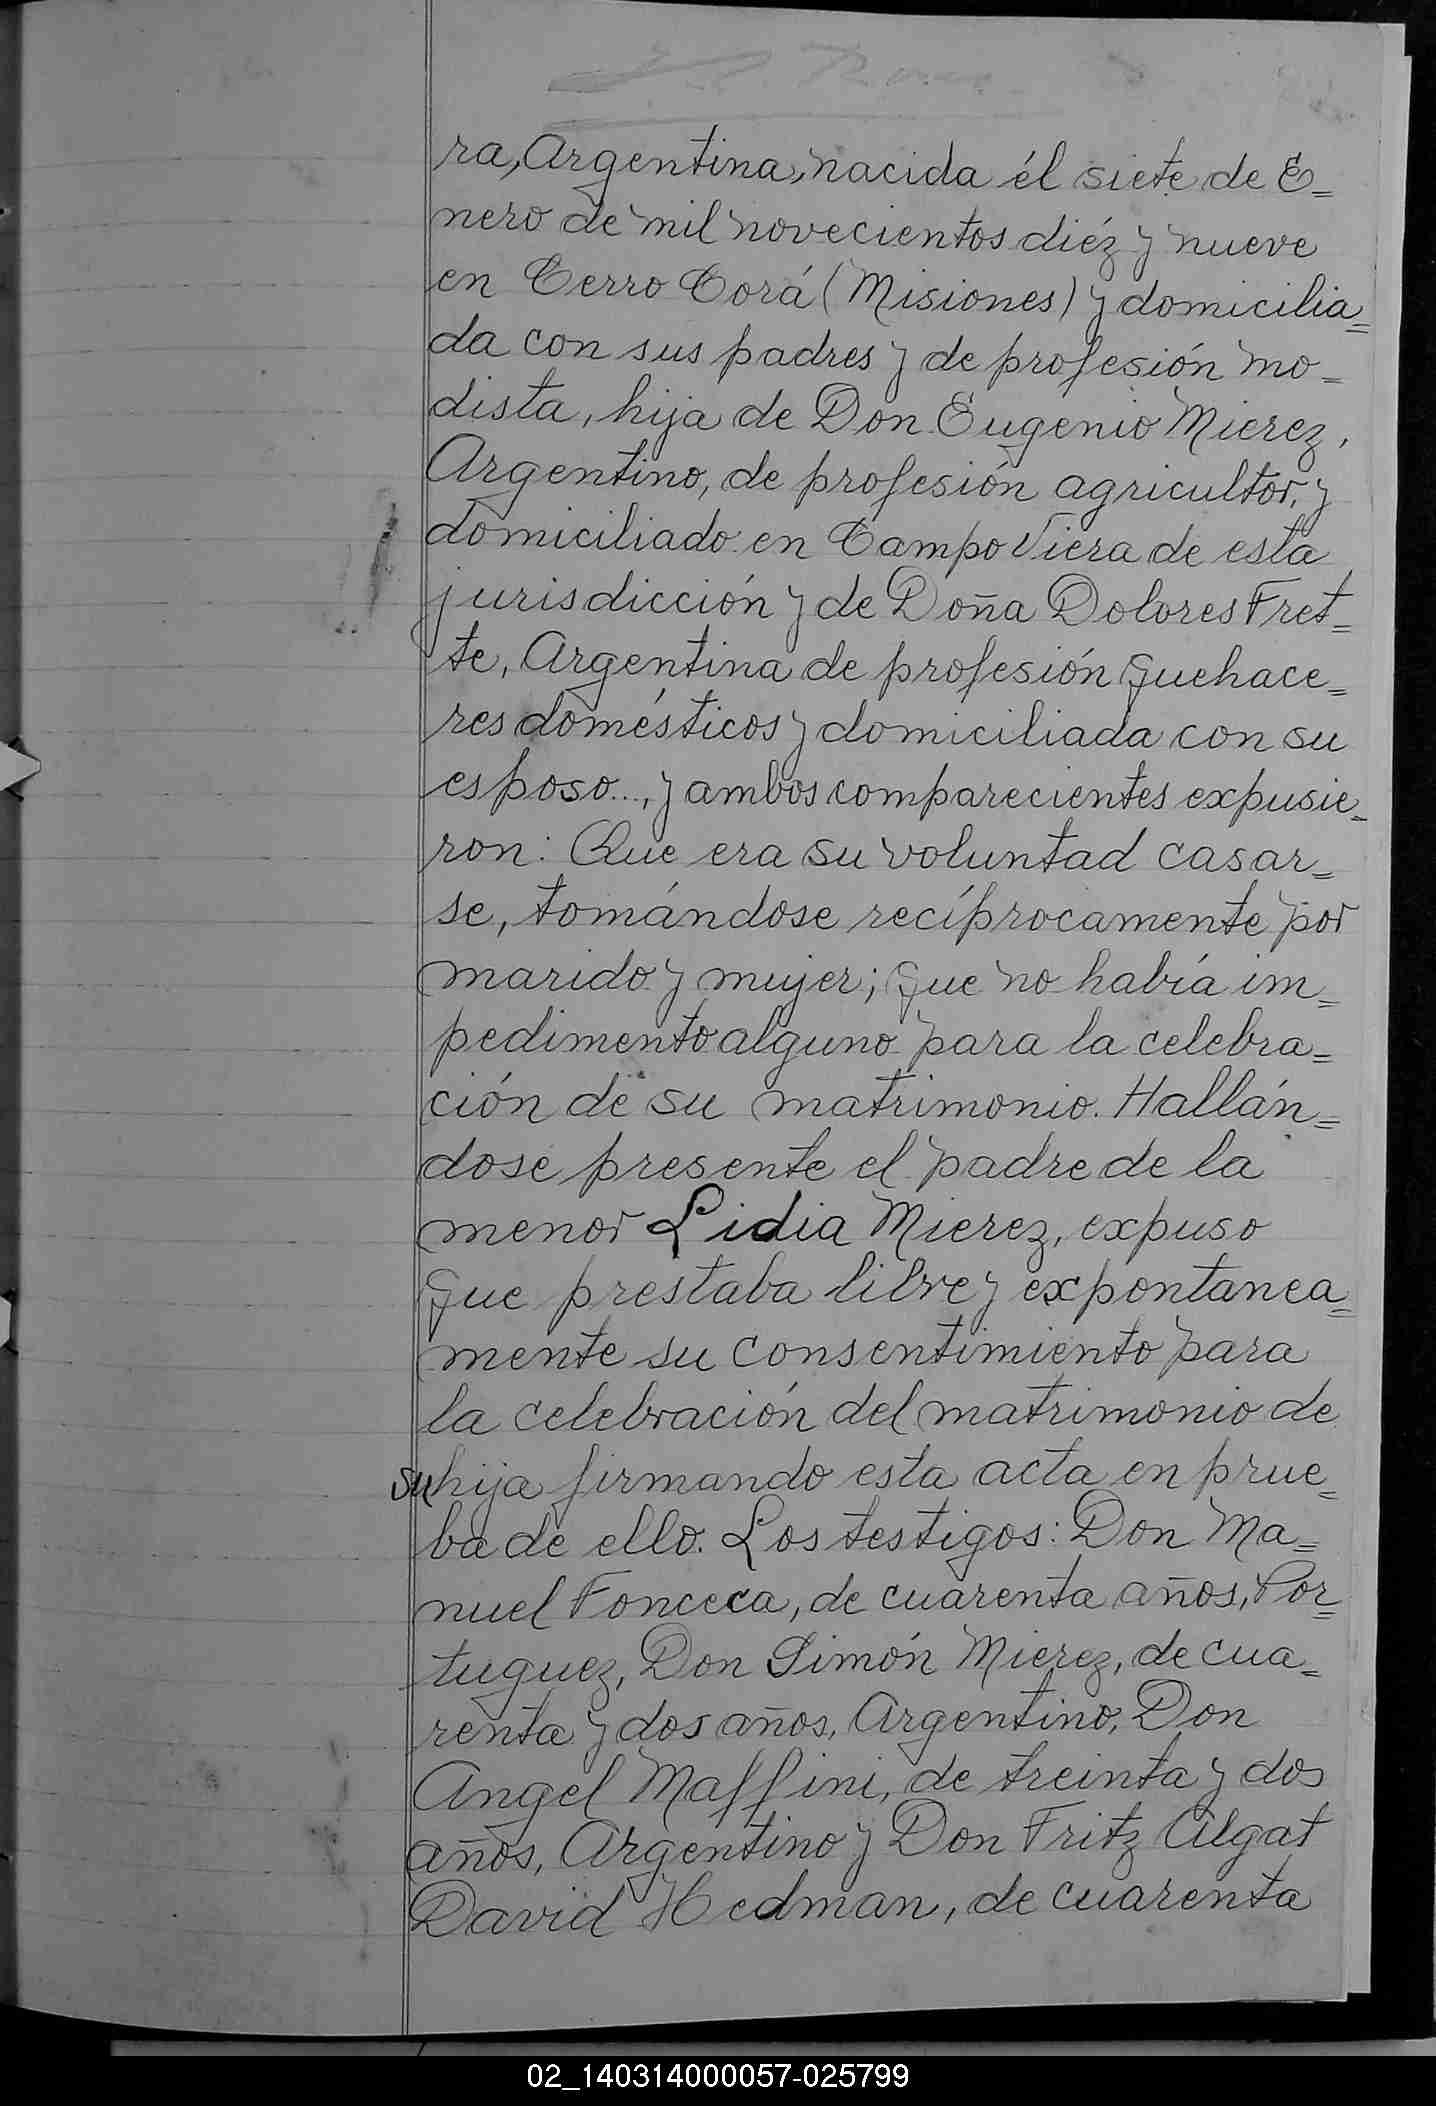 ra, Argentina, nacida él siete de E=
nero de mil novecientos diéz y nueve
en Cerro Corá (Misiones) y domicilia=
da con sus padres y de profesión mo=
dista, hija de Don Eugenio Mierez,
Argentino, de profesión agricultor, y
domiciliado en Campo Viera de esta
jurisdicción y de Doña Dolores Fret=
te, Argentina de profesión quehace=
res domésticos y domiciliada con su
esposo..., y ambos comparecientes expusie=
ron: Que era su voluntad casar=
se, tomándose recíprocamente por
marido y mujer; que no había im=
pedimento alguno para la celebra=
ción de su matrimonio. Hallán=
dose presente el padre de la
menor Lidia Mierez, expuso
que prestaba libre y expontanea=
mente su consentimiento para
la celebración del matrimonio de
su hija firmando esta acta en prue=
ba de ello. Los testigos: Don Ma=
nuel Fonceca, de cuarenta años, Por=
tuguez, Don Simón Mierez, de cua=
renta y dos años, Argentino, Don
Angel Maffini, de treinta y dos
años, Argentino y Don Fritz Algat
David Hedman, de cuarenta
02_140314000057-025799